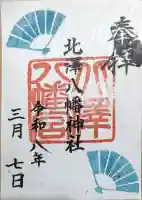 奉拝
北澤八幡神社
北澤
八幡宮
令和八年
三月七日